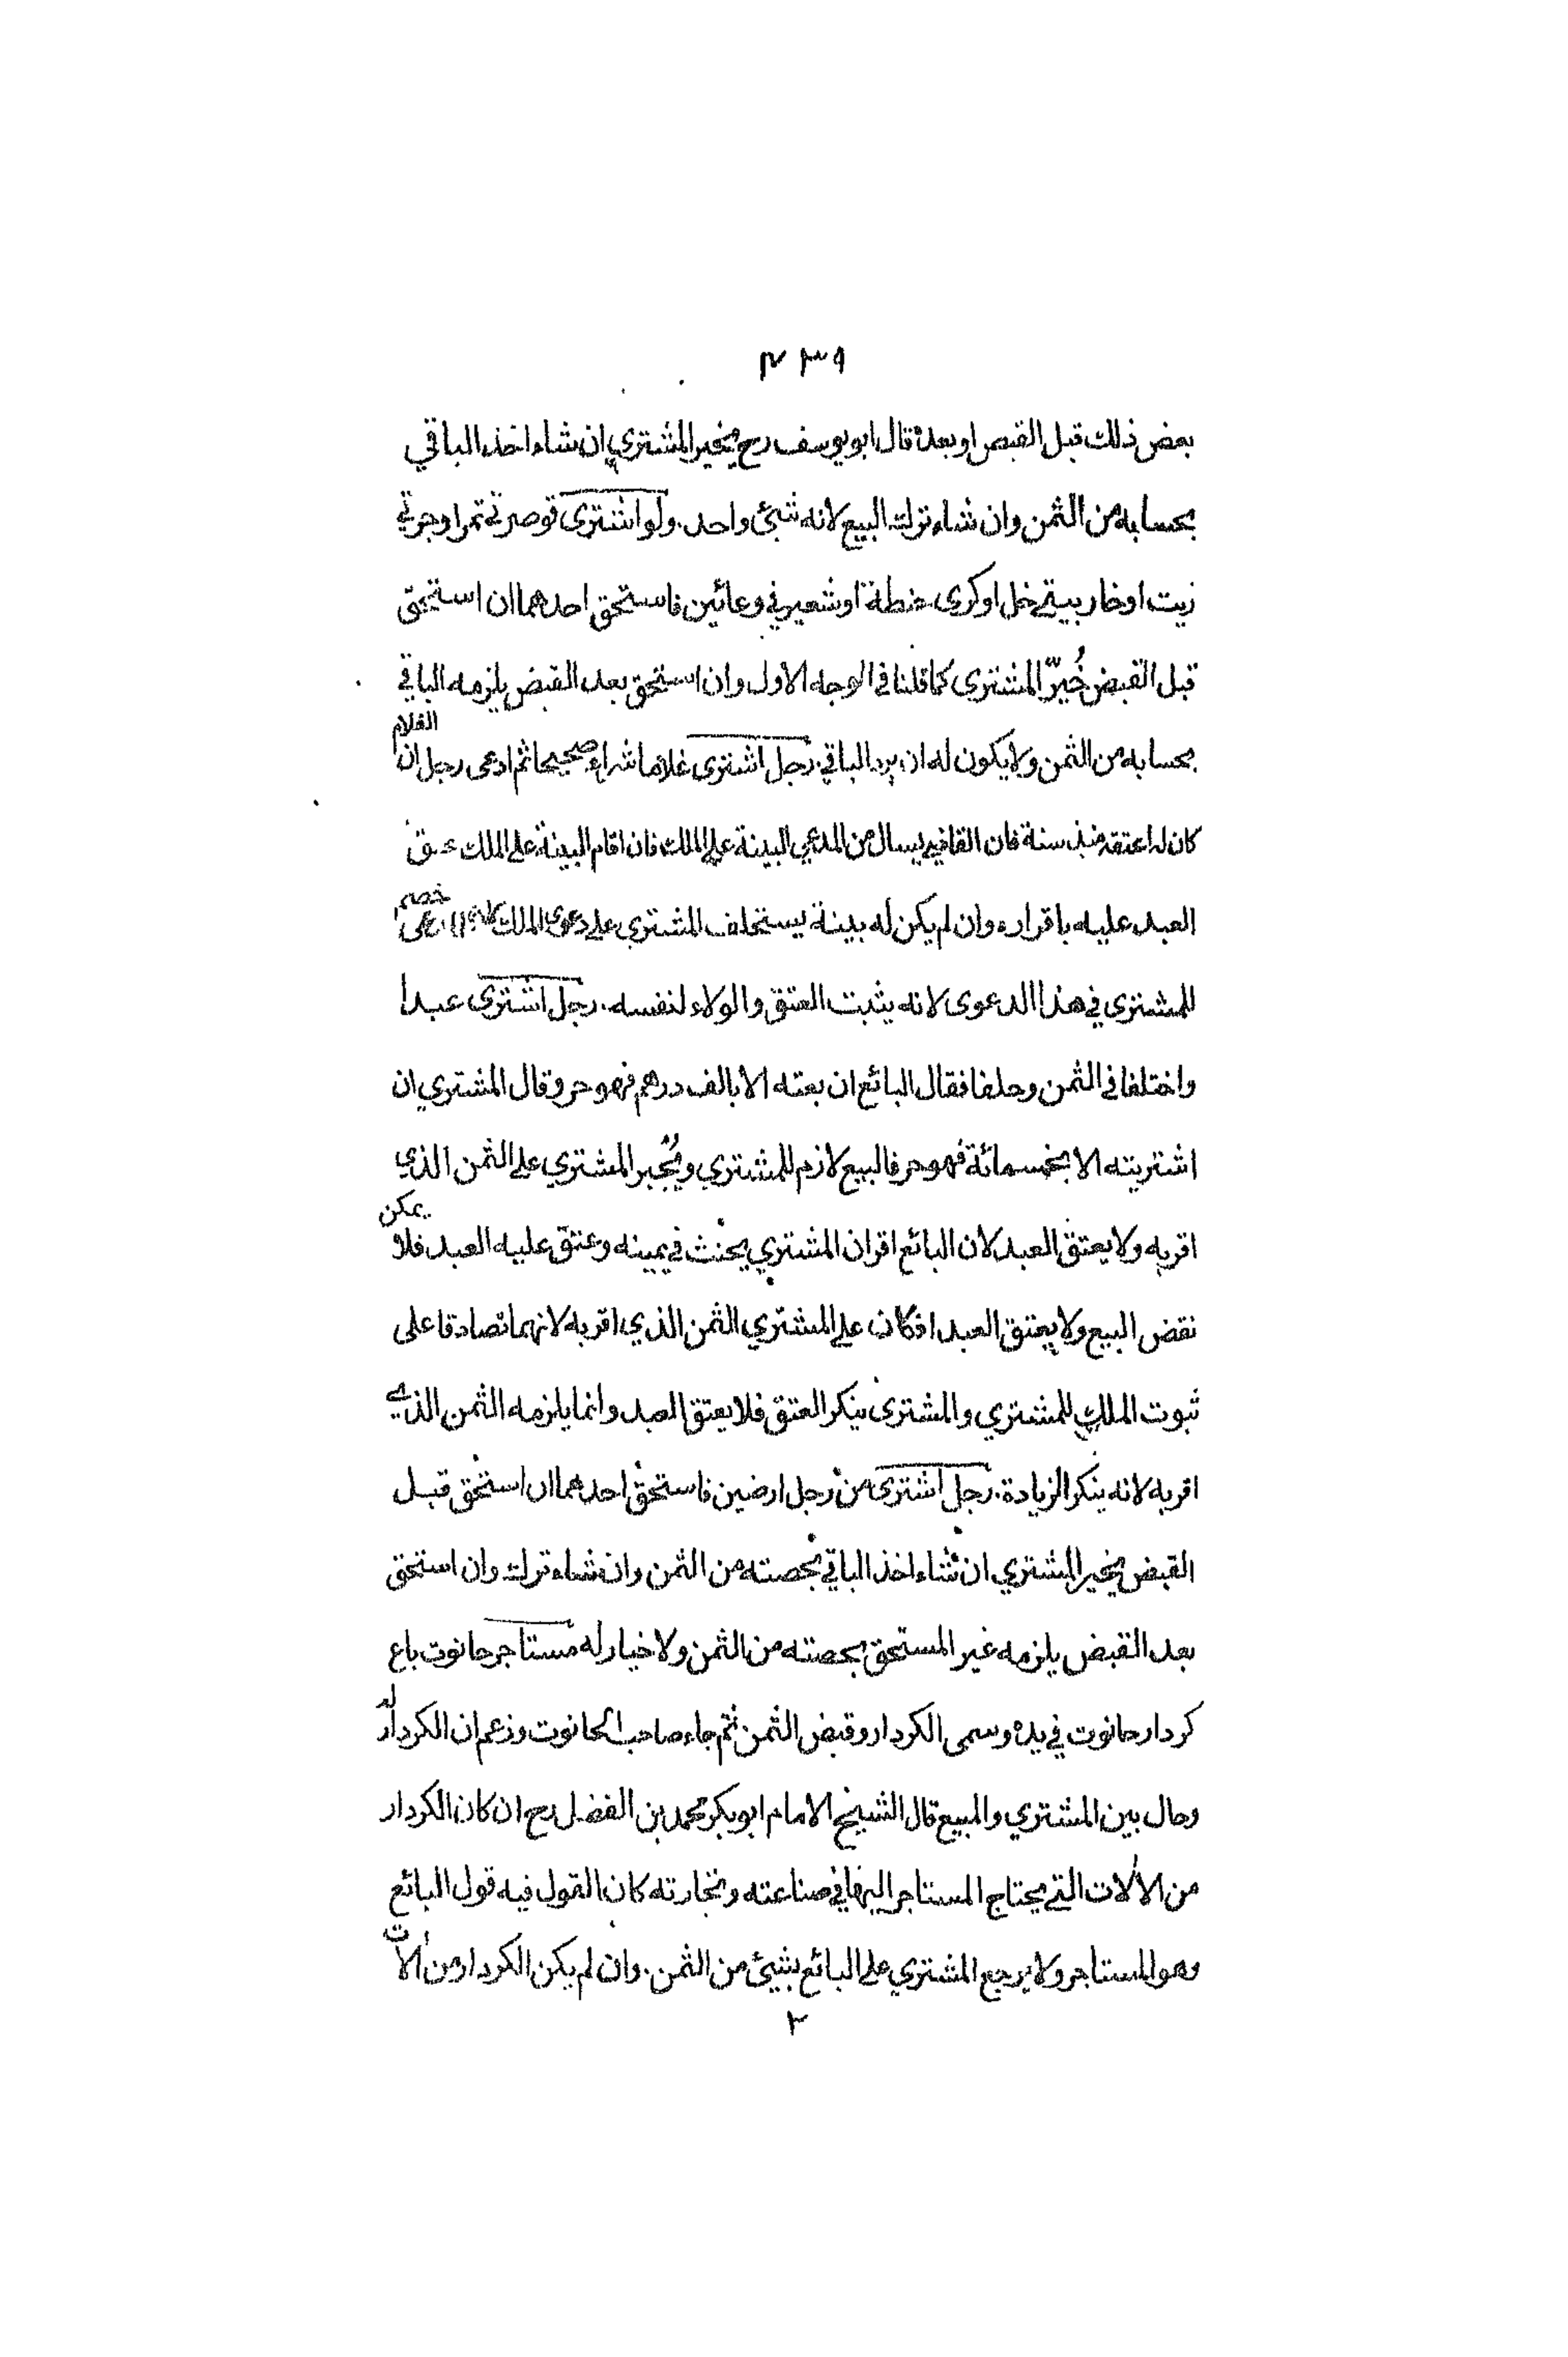 ٤٣٩
بعض ذلك قبل القبض او بعده قال ابو يوسف رح يخير المشتري ان شاء اخذ الباقي
بحسابه من الثمن وان شاء ترك البيع لانه شيئ واحد. ولو اشترى قوصرتي تمر او جرتي
زيت او خابيتي خل او كري حنطة او شعير في وعائين فاستحق احدهما ان استحق
قبل القبض خُيّر المشتري كما قلنا في الوجه الاول وان استحق بعد القبض يلزمه الباقي
بحسابه من الثمن ولا يكون له ان يرد الباقي. رجل اشترى غلاما شراء صحيحا ثم ادعى رجل ان الغلام
كان له اعتقه منذ سنة فان القاضي يسال من المدعي البينة على الملك فان اقام البينة على الملك عتق
العبد عليه باقراره وان لم يكن له بينة يستحلف المشتري على دعوى الملك لان المدعى خصم
للمشتري في هذا الدعوى لانه يثبت العتق والولاء لنفسه. رجل اشترى عبدا
واختلفا في الثمن وحلفا فقال البائع ان بعته الا بالف درهم فهو حر وقال المشتري ان
اشتريته الا بخمسمائة فهو حر فالبيع لازم للمشتري ويُجبر المشتري على الثمن الذي
اقر به ولا يعتق العبد لان البائع اقر ان المشتري يحنث في يمينه وعتق عليه العبد فلا يمكن
نقض البيع ولا يعتق العبد اذ كان على المشتري الثمن الذي اقر به لانهما تصادقا على
ثبوت الملك للمشتري والمشترى ينكر العتق فلا يعتق العبد وانما يلزمه الثمن الذي
اقر به لانه ينكر الزيادة. رجل اشترى من رجل ارضين فاستحق احدهما ان استحق قبل
القبض يخير المشتري ان شاء اخذ الباقي بحصته من الثمن وان شاء ترك وان استحق
بعد القبض يلزمه غير المستحق بحصته من الثمن ولا خيار له مستاجر حانوت باع
كردار حانوت في يده وسمى الكردار وقبض الثمن ثم جاء صاحب الحانوت وزعم ان الكردار له
وحال بين المشتري والمبيع قال الشيخ الامام ابو بكر محمد بن الفضل رح ان كان الكردار
من الآلات التي يحتاج المستاجر اليها في صناعته وتجارته كان القول فيه قول البائع
وهو المستاجر ولا يرجع المشتري على البائع بشيئ من الثمن. وان لم يكن الكردار من آلات
٢